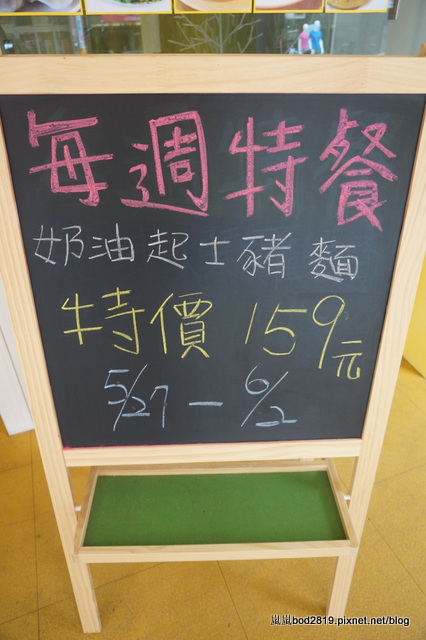 每週特餐
奶油起士豬麵
特價 159元
5/27 — 6/2
嵐嵐bod2819.pixnet.net/blog